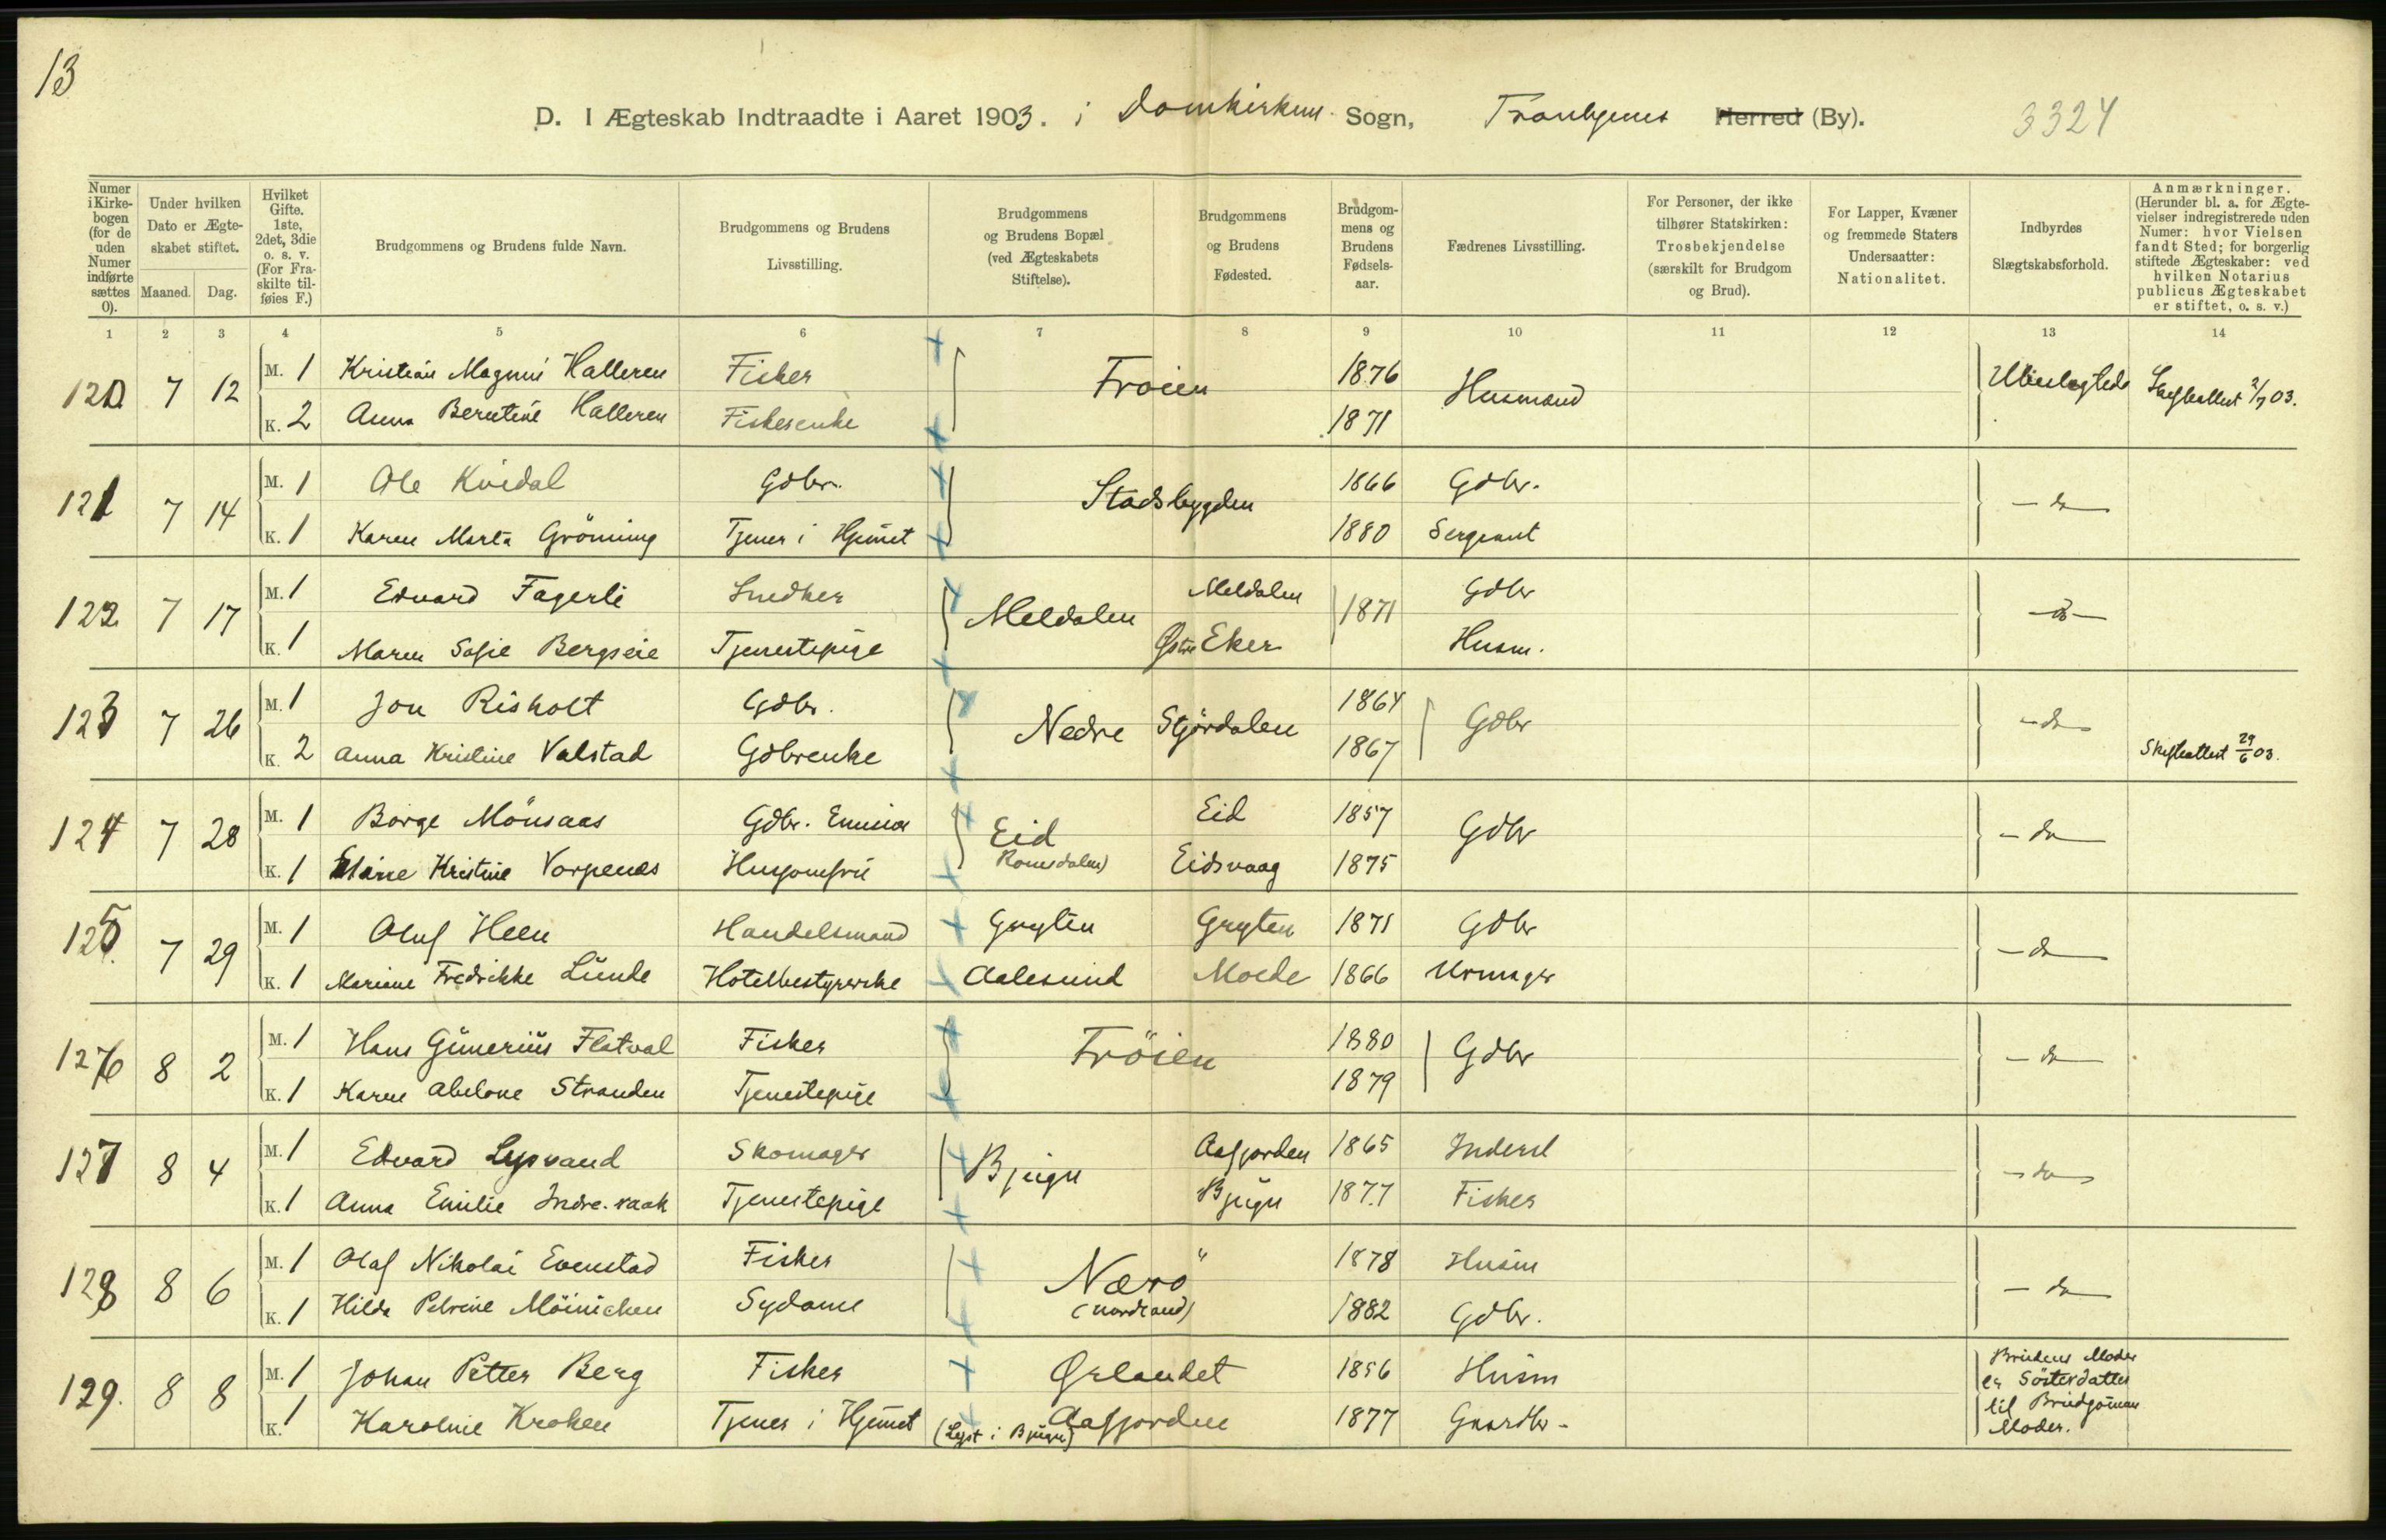 13
D. I Ægteskab Indtraadte i Aaret 1903. i Domkirken Sogn, Trondhjems Herred (By). 3324
Numer i Kirkebogen (for de uden Numer indførte sættes 0).
Under hvilken Dato er Ægteskabet stiftet.
Maaned. Dag.
Hvilket Gifte. 1ste, 2det, 3die o. s. v. (For Fraskilte tilføies F.)
Brudgommens og Brudens fulde Navn.
Brudgommens og Brudens Livsstilling.
Brudgommens og Brudens Bopæl (ved Ægteskabets Stiftelse).
Brudgommens og Brudens Fødested.
Brudgommens og Brudens Fødselsaar.
Fædrenes Livsstilling.
For Personer, der ikke tilhører Statskirken: Trosbekjendelse (særskilt for Brudgom og Brud).
For Lapper, Kvæner og fremmede Staters Undersaatter: Nationalitet.
Indbyrdes Slægtskabsforhold.
Anmærkninger. (Herunder bl. a. for Ægtevielser indregistrerede uden Numer: hvor Vielsen fandt Sted; for borgerlig stiftede Ægteskaber: ved hvilken Notarius publicus Ægteskabet er stiftet, o. s. v.)
1 2 3 4 5 6 7 8 9 10 11 12 13 14
120 7 12 M. 1 Kristian Magnus Halleren Fisker Froien 1876 Husmand Ubeslegtede Skifteattest 2/7 03.
K. 2 Anna Berntine Halleren Fiskerenke 1871
121 7 14 M. 1 Ole Kvidal Gdbr. Stadsbygden 1866 Gdbr. - do -
K. 1 Karen Marta Gröning Tjener i Hjemet 1880 Sergeant
122. 7 17 M. 1 Edvard Fagerli Snedker Meldalen Meldalen 1871 Gdbr - do -
K. 1 Maren Sofie Bergseie Tjenestepige Østre Eker Husm.
123 7 26 M. 1 Jon Risholt Gdbr. Nedre Stjördalen 1864 Gdbr - do -
K. 2 Anna Kristine Valstad Gdbrenke 1867 Skifteattest 29/6 03.
124 7 28 M. 1 Borge Mönsaas Gdbr. Eid Eid 1857 Gdbr - do -
K. 1 Kristine Vorpenes Husjomfru Romsdalen) Eidsvaag 1875
125. 7 29 M. 1 Oluf Heen Handelsmand Gryten Gryten 1871 Gdbr - do -
K. 1 Mariane Fredrikke Lunde Hotelbestyrerske Aalesund Molde 1866 Urmager
126 8 2 M. 1 Hans Gunerius Flatval Fisker Fröien 1880 Gdbr - do -
K. 1 Karen Abelone Stranden Tjenestepige 1879
127 8 4 M. 1 Edvard Lysvand Skomager Bjugn Aafjorden 1865 Inderst - do -
K. 1 Anna Emilie Indre-vaak Tjenestepige Bjugn 1877 Fisker
128 8 6 M. 1 Olaf Nikolai Evenstad Fisker Nærö 1878 Husm - do -
K. 1 Hilda Petrine Möinichen Sydame (Nordland) 1882 Gdbr.
129. 8 8 M. 1 Johan Petter Berg Fisker Ørlandet 1856 Husm Brudens Moder
er Sösterdatter
K. 1 Karoline Kroken Tjener i Hjemet (Lyst i Bjugn) Aafjorden 1877 Gaardbr. til Brudgommens
Moder.